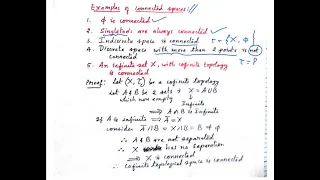 Examples of connected spaces:
1. ϕ is connected
2. Singletons are always connected
3. Indiscrete space is connected
τ = {X, ϕ}
4. Discrete space with more than 2 points is not connected
τ = P
5. An infinite set X, with cofinite topology is connected
Proof: Let (X, τ) be a cofinite topology
Let A & B be 2 sets ∋ X = A∪B
which non empty ↓
Infinite
If A is infinite ⟹ Ā = X
consider Ā∩B = X∩B = B ≠ ϕ
∴ A & B are not separated
∴ X has no separation
⟹ X is connected
∴ Cofinite topological space is connected